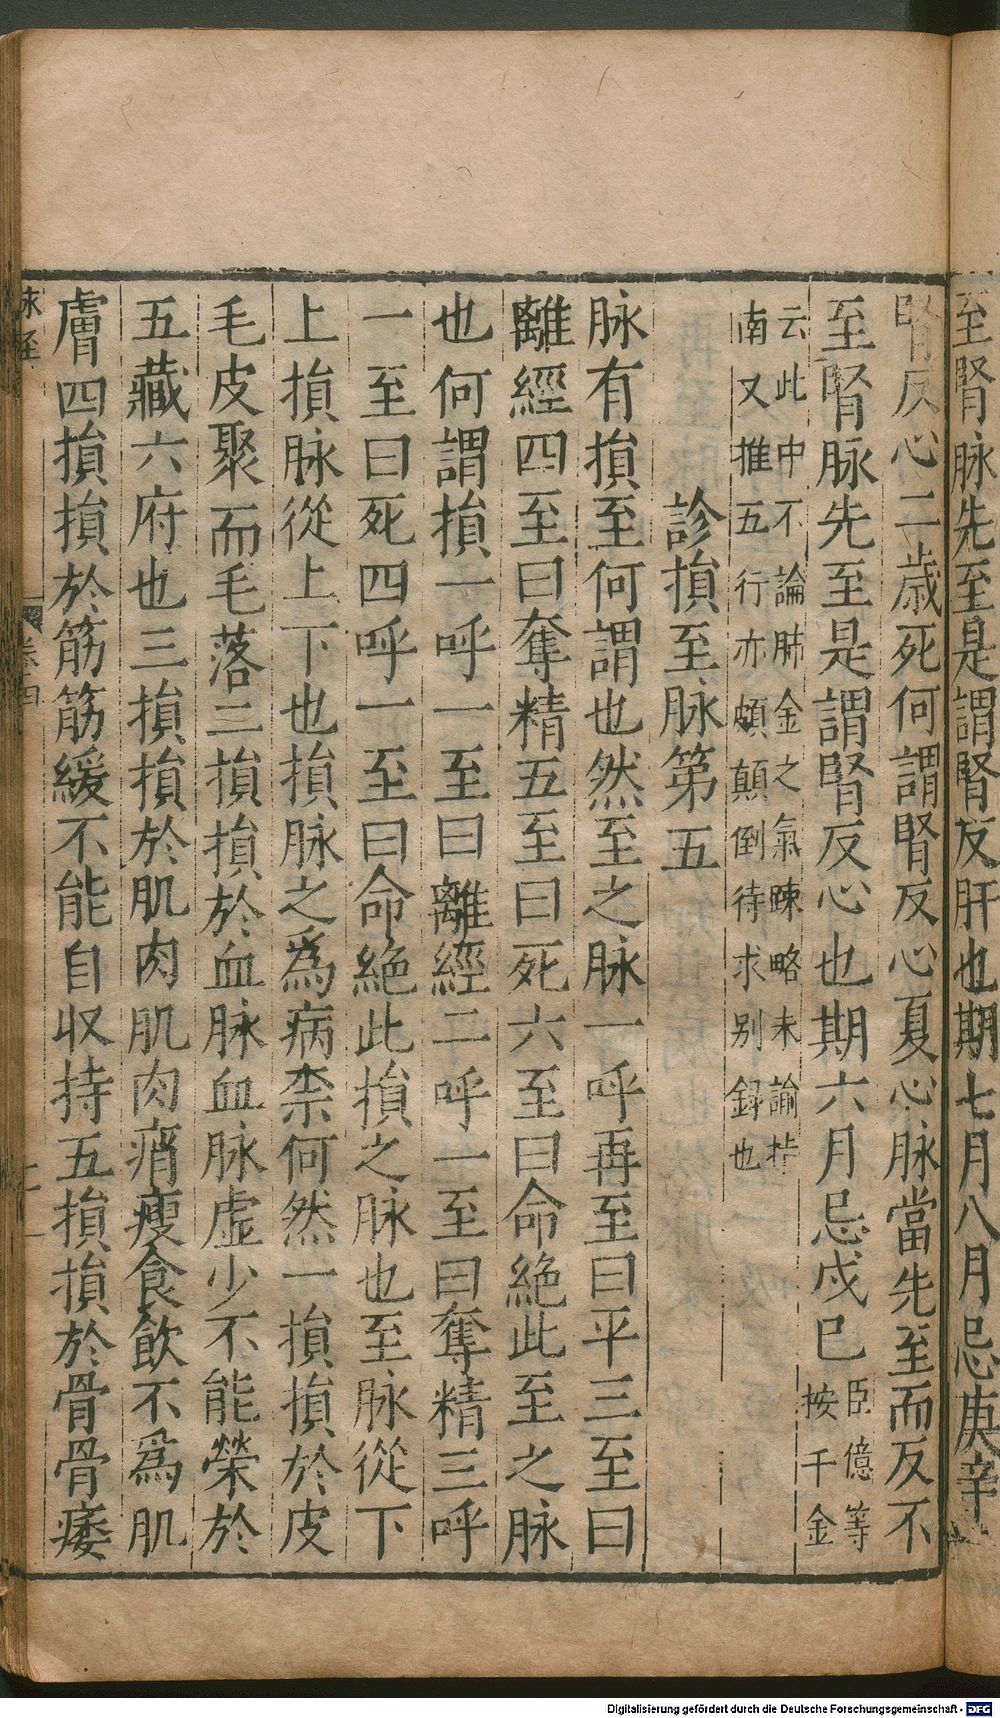 至腎脉先至是謂腎反肝也期七月八月忌庚辛
腎反心二歲死何謂腎反心夏心脉當先至而反不
至腎脉先至是謂腎反心也期六月忌戌巳臣億等按千金
云此中不論肺金之氣疎略未諭
南又推五行亦頗顛倒待求别録也
診損至脉第五
脉有損至何謂也然至之脉一呼再至曰平三至曰
離經四至曰奪精五至曰死六至曰命絶此至之脉
也何謂損一呼一至曰離經二呼一至曰奪精三呼
一至曰死四呼一至曰命絶此損之脉也至脉從下
上損脉從上下也損脉之爲病柰何然一損損於皮
毛皮聚而毛落二損損於血脉血脉虚少不能榮於
五藏六府也三損損於肌肉肌肉痟瘦食飲不爲肌
膚四損損於筋筋緩不能自収持五損損於骨骨痿
脉經 卷四 十一
Digitalisierung gefördert durch die Deutsche Forschungsgemeinschaft - DFG